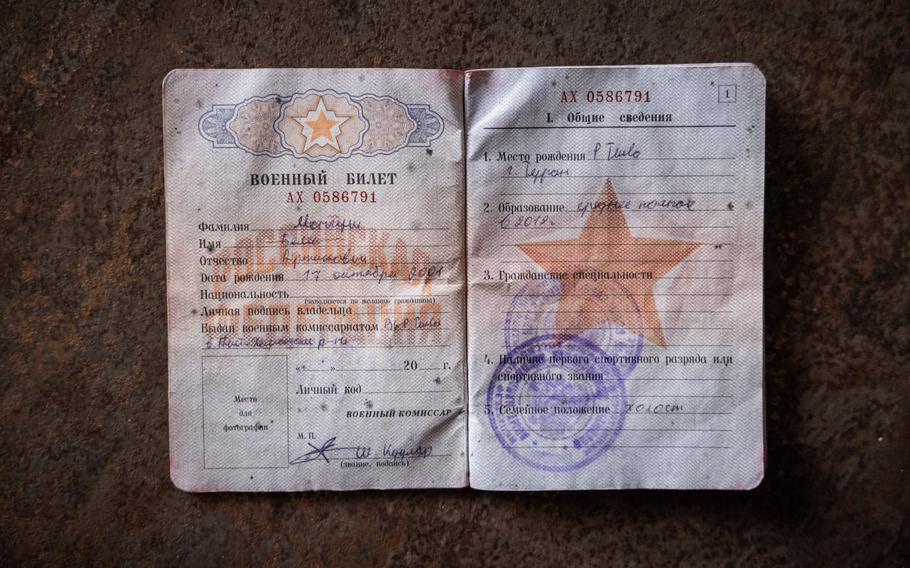 ВОЕННЫЙ БИЛЕТ
АХ 0586791
Фамилия
Имя
Отчество
Дата рождения 17 октября 2001
Национальность
(заполняется по желанию гражданина)
Личная подпись владельца
Выдан военным комиссариатом
р-на
«  »  20  г.
Личный код
Место
для
фотографии
ВОЕННЫЙ КОМИССАР
М. П.
(звание, подпись)
АХ 0586791
1
I. Общие сведения
1. Место рождения Р. Тыва
г. Туран
2. Образование среднее полное
в 2019г.
3. Гражданские специальности
4. Наличие первого спортивного разряда или
спортивного звания
5. Семейное положение холост